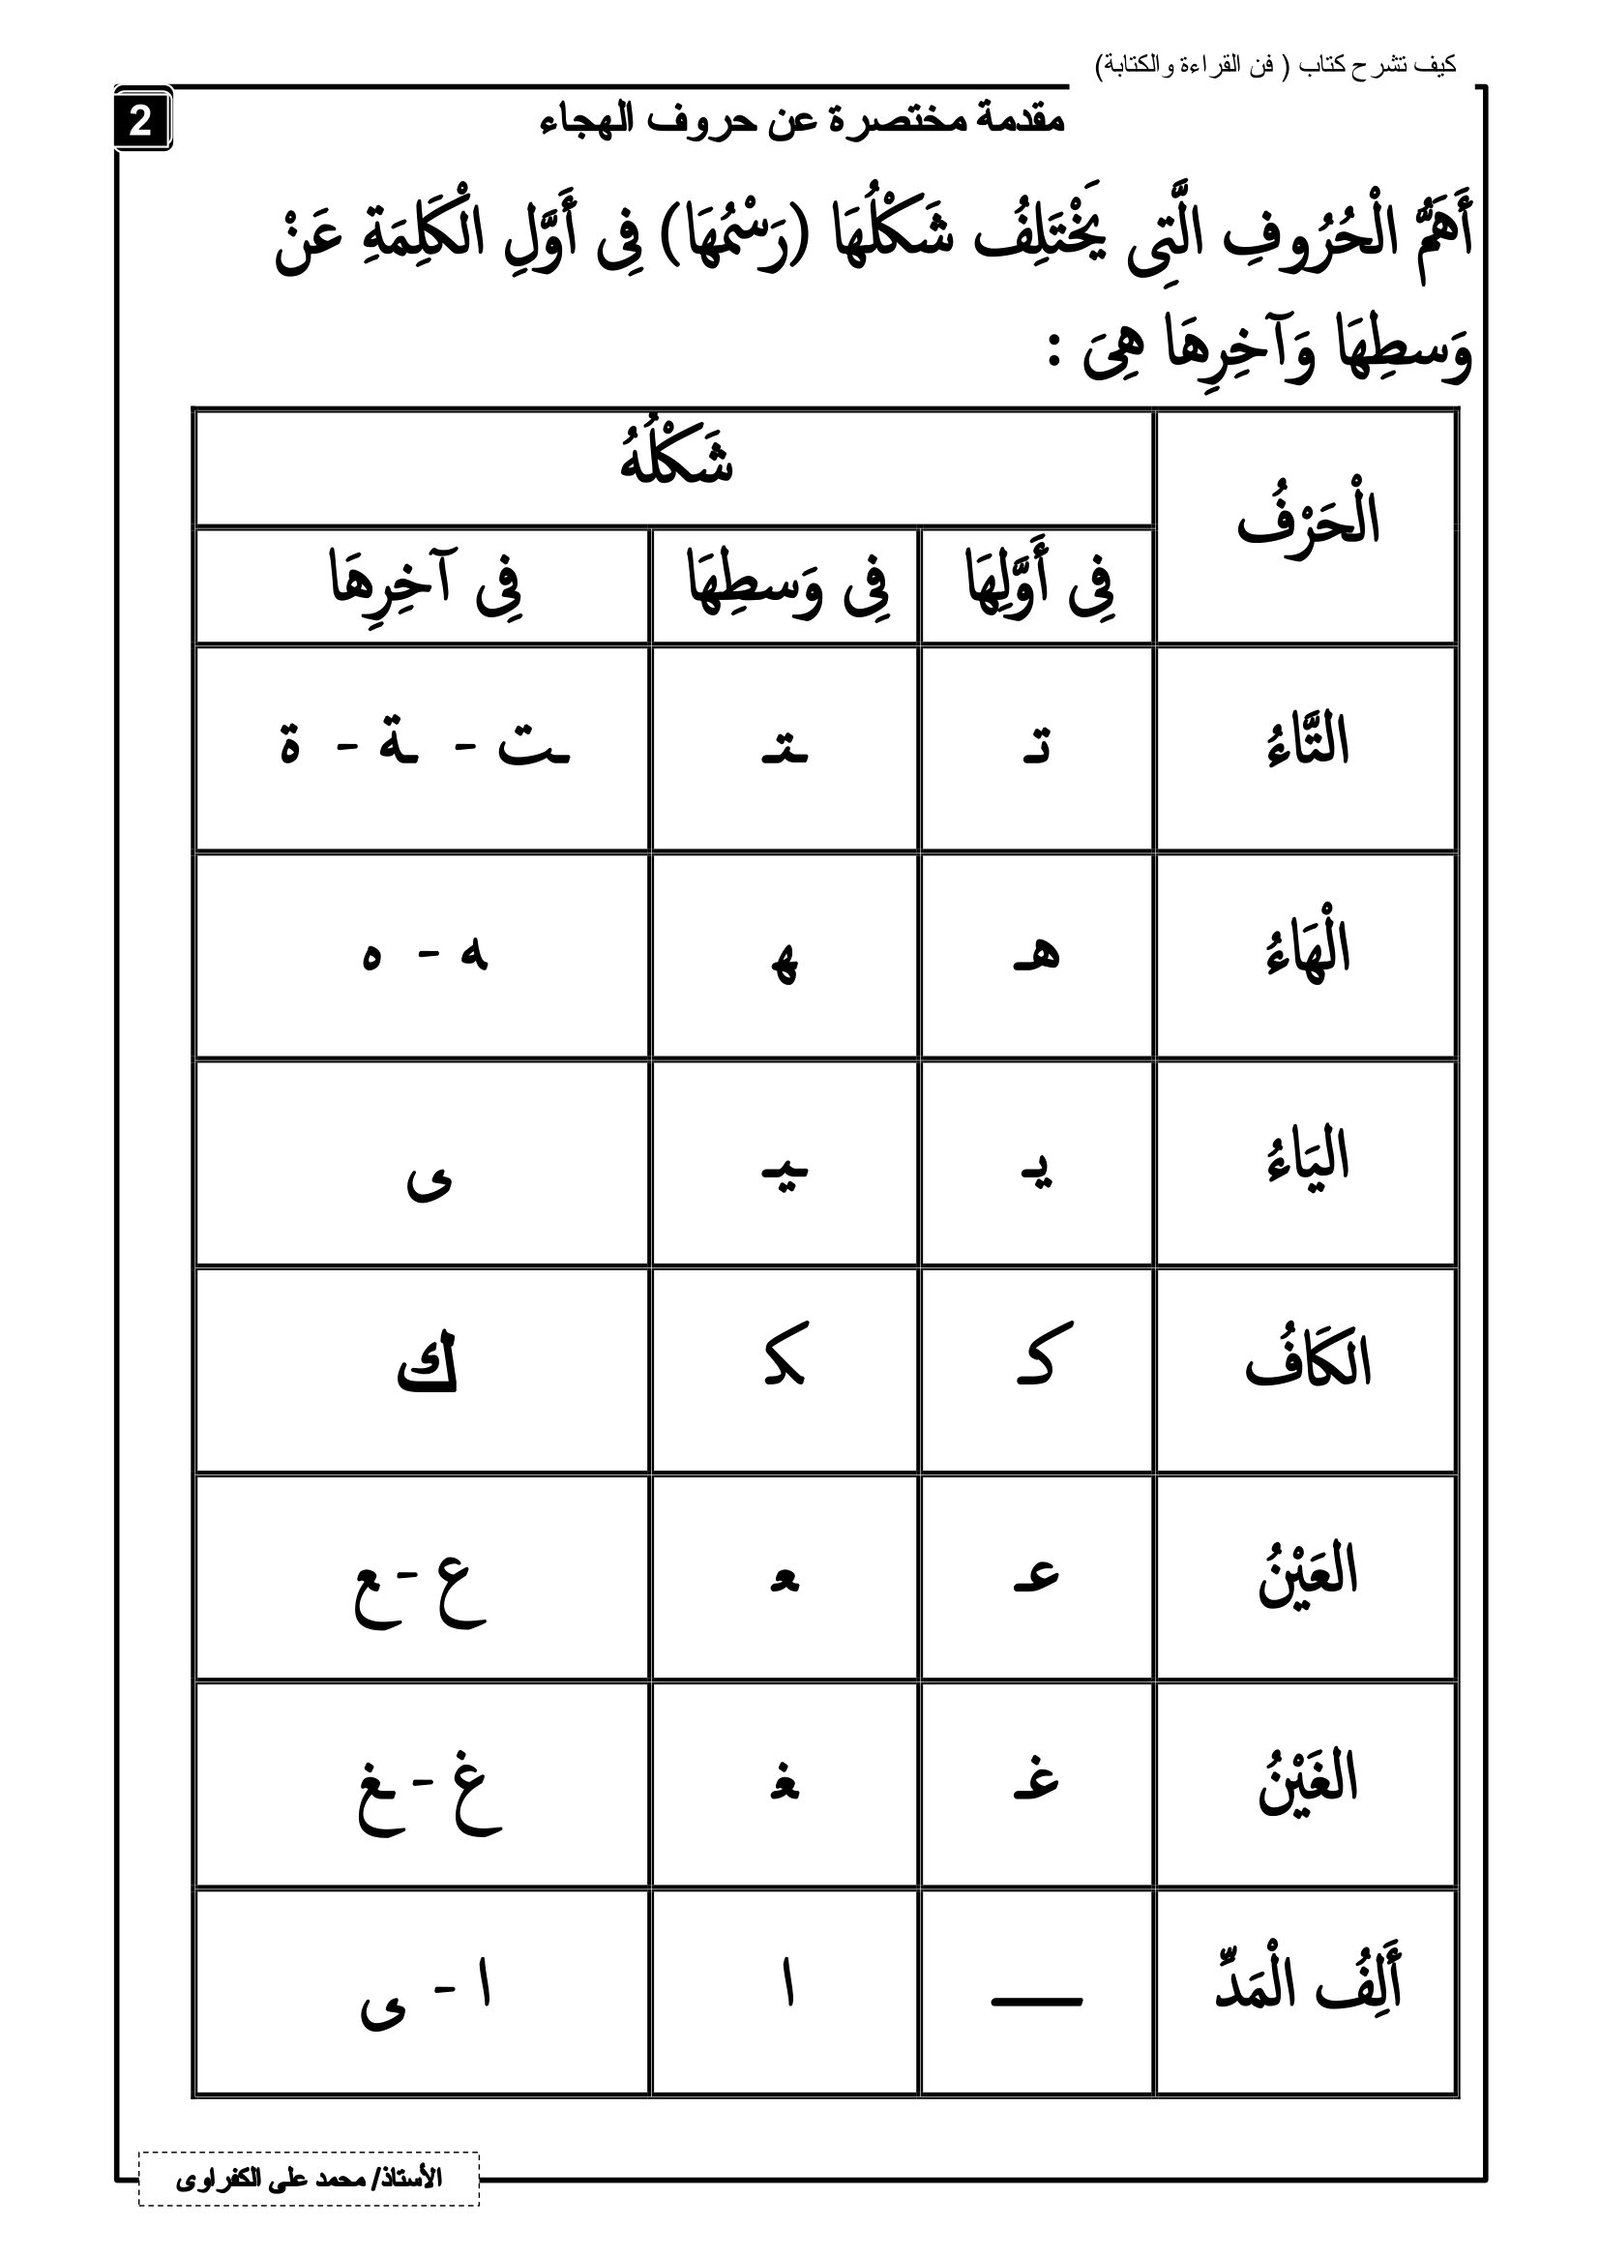 كيف تشرح كتاب ( فن القراءة والكتابة)
2
مقدمة مختصرة عن حروف الهجاء
أَهَمُّ الْحُرُوفِ الَّتِى يَخْتَلِفُ شَكْلُهَا (رَسْمُهَا) فِى أَوَّلِ الْكَلِمَةِ عَنْ
وَسطِهَا وَآخِرِهَا هِىَ :
الْحَرْفُ شَكْلُهُ
فِى أَوَّلِهَا فِى وَسطِهَا فِى آخِرِهَا
التَّاءُ تـ ـتـ ـت - ـة - ة
الْهَاءُ هـ ـهـ ـه - ه
اليَاءُ يـ ـيـ ى
الكَافُ كـ ـكـ ك
العَيْنُ عـ ـعـ ع - ـع
الغَيْنُ غـ ـغـ غ - ـغ
أَلِفُ الْمَدِّ ـــــ ا ا - ى
الأستاذ/ محمد على الكفراوى